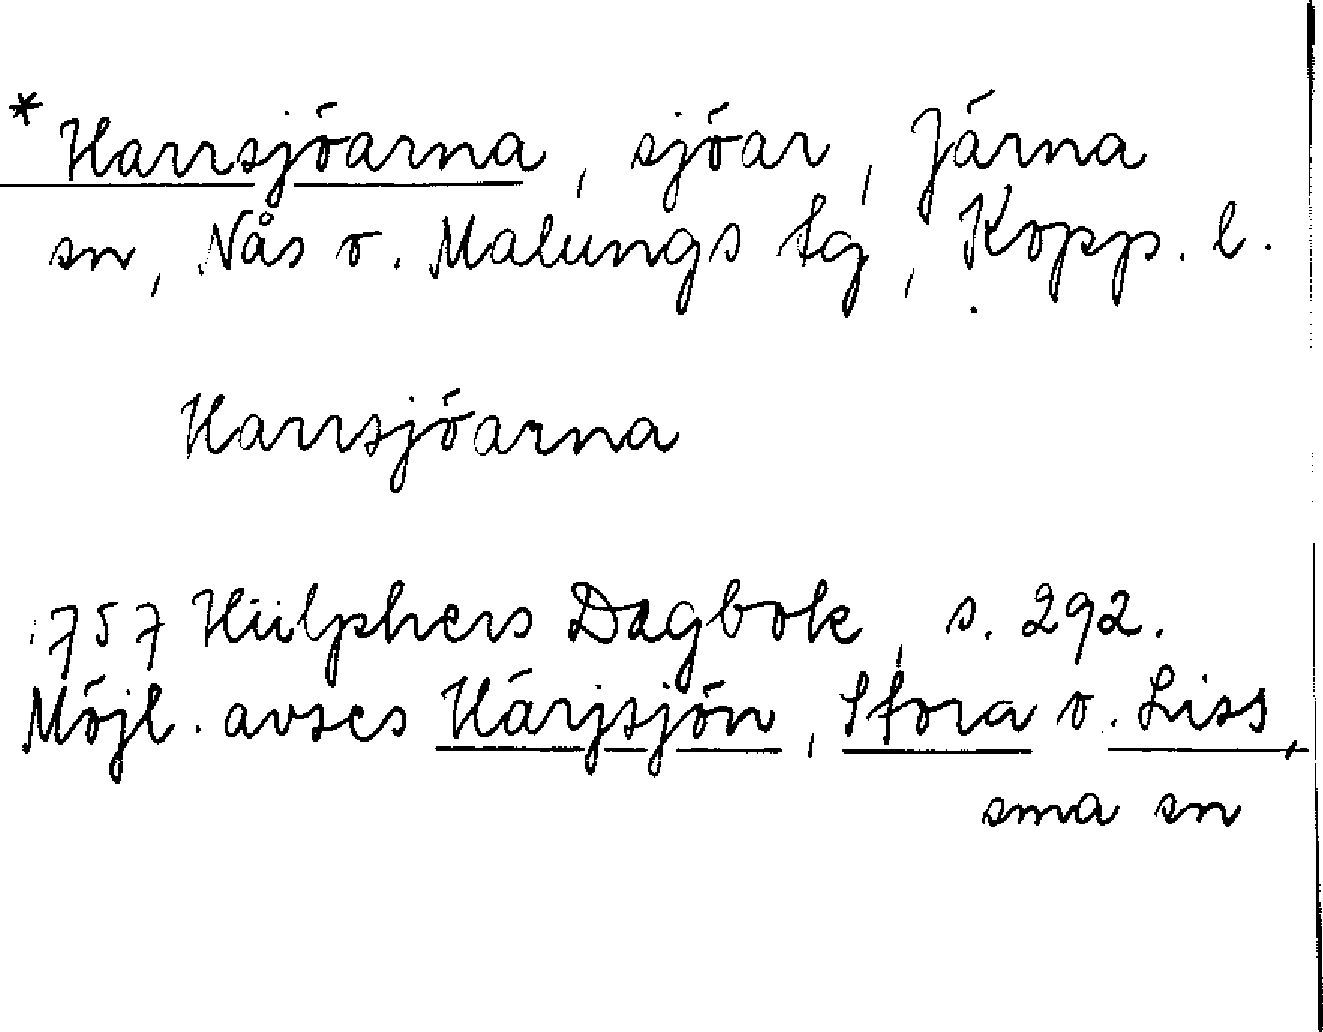 * Harrsjöarna, sjöar, Järna
sn, Nås o. Malungs tg, Kopp. l.
Harrsjöarna
1757 Hülphers Dagbok, s. 292.
Möjl. avses Härjsjön, Stora o. Liss,
sma sn